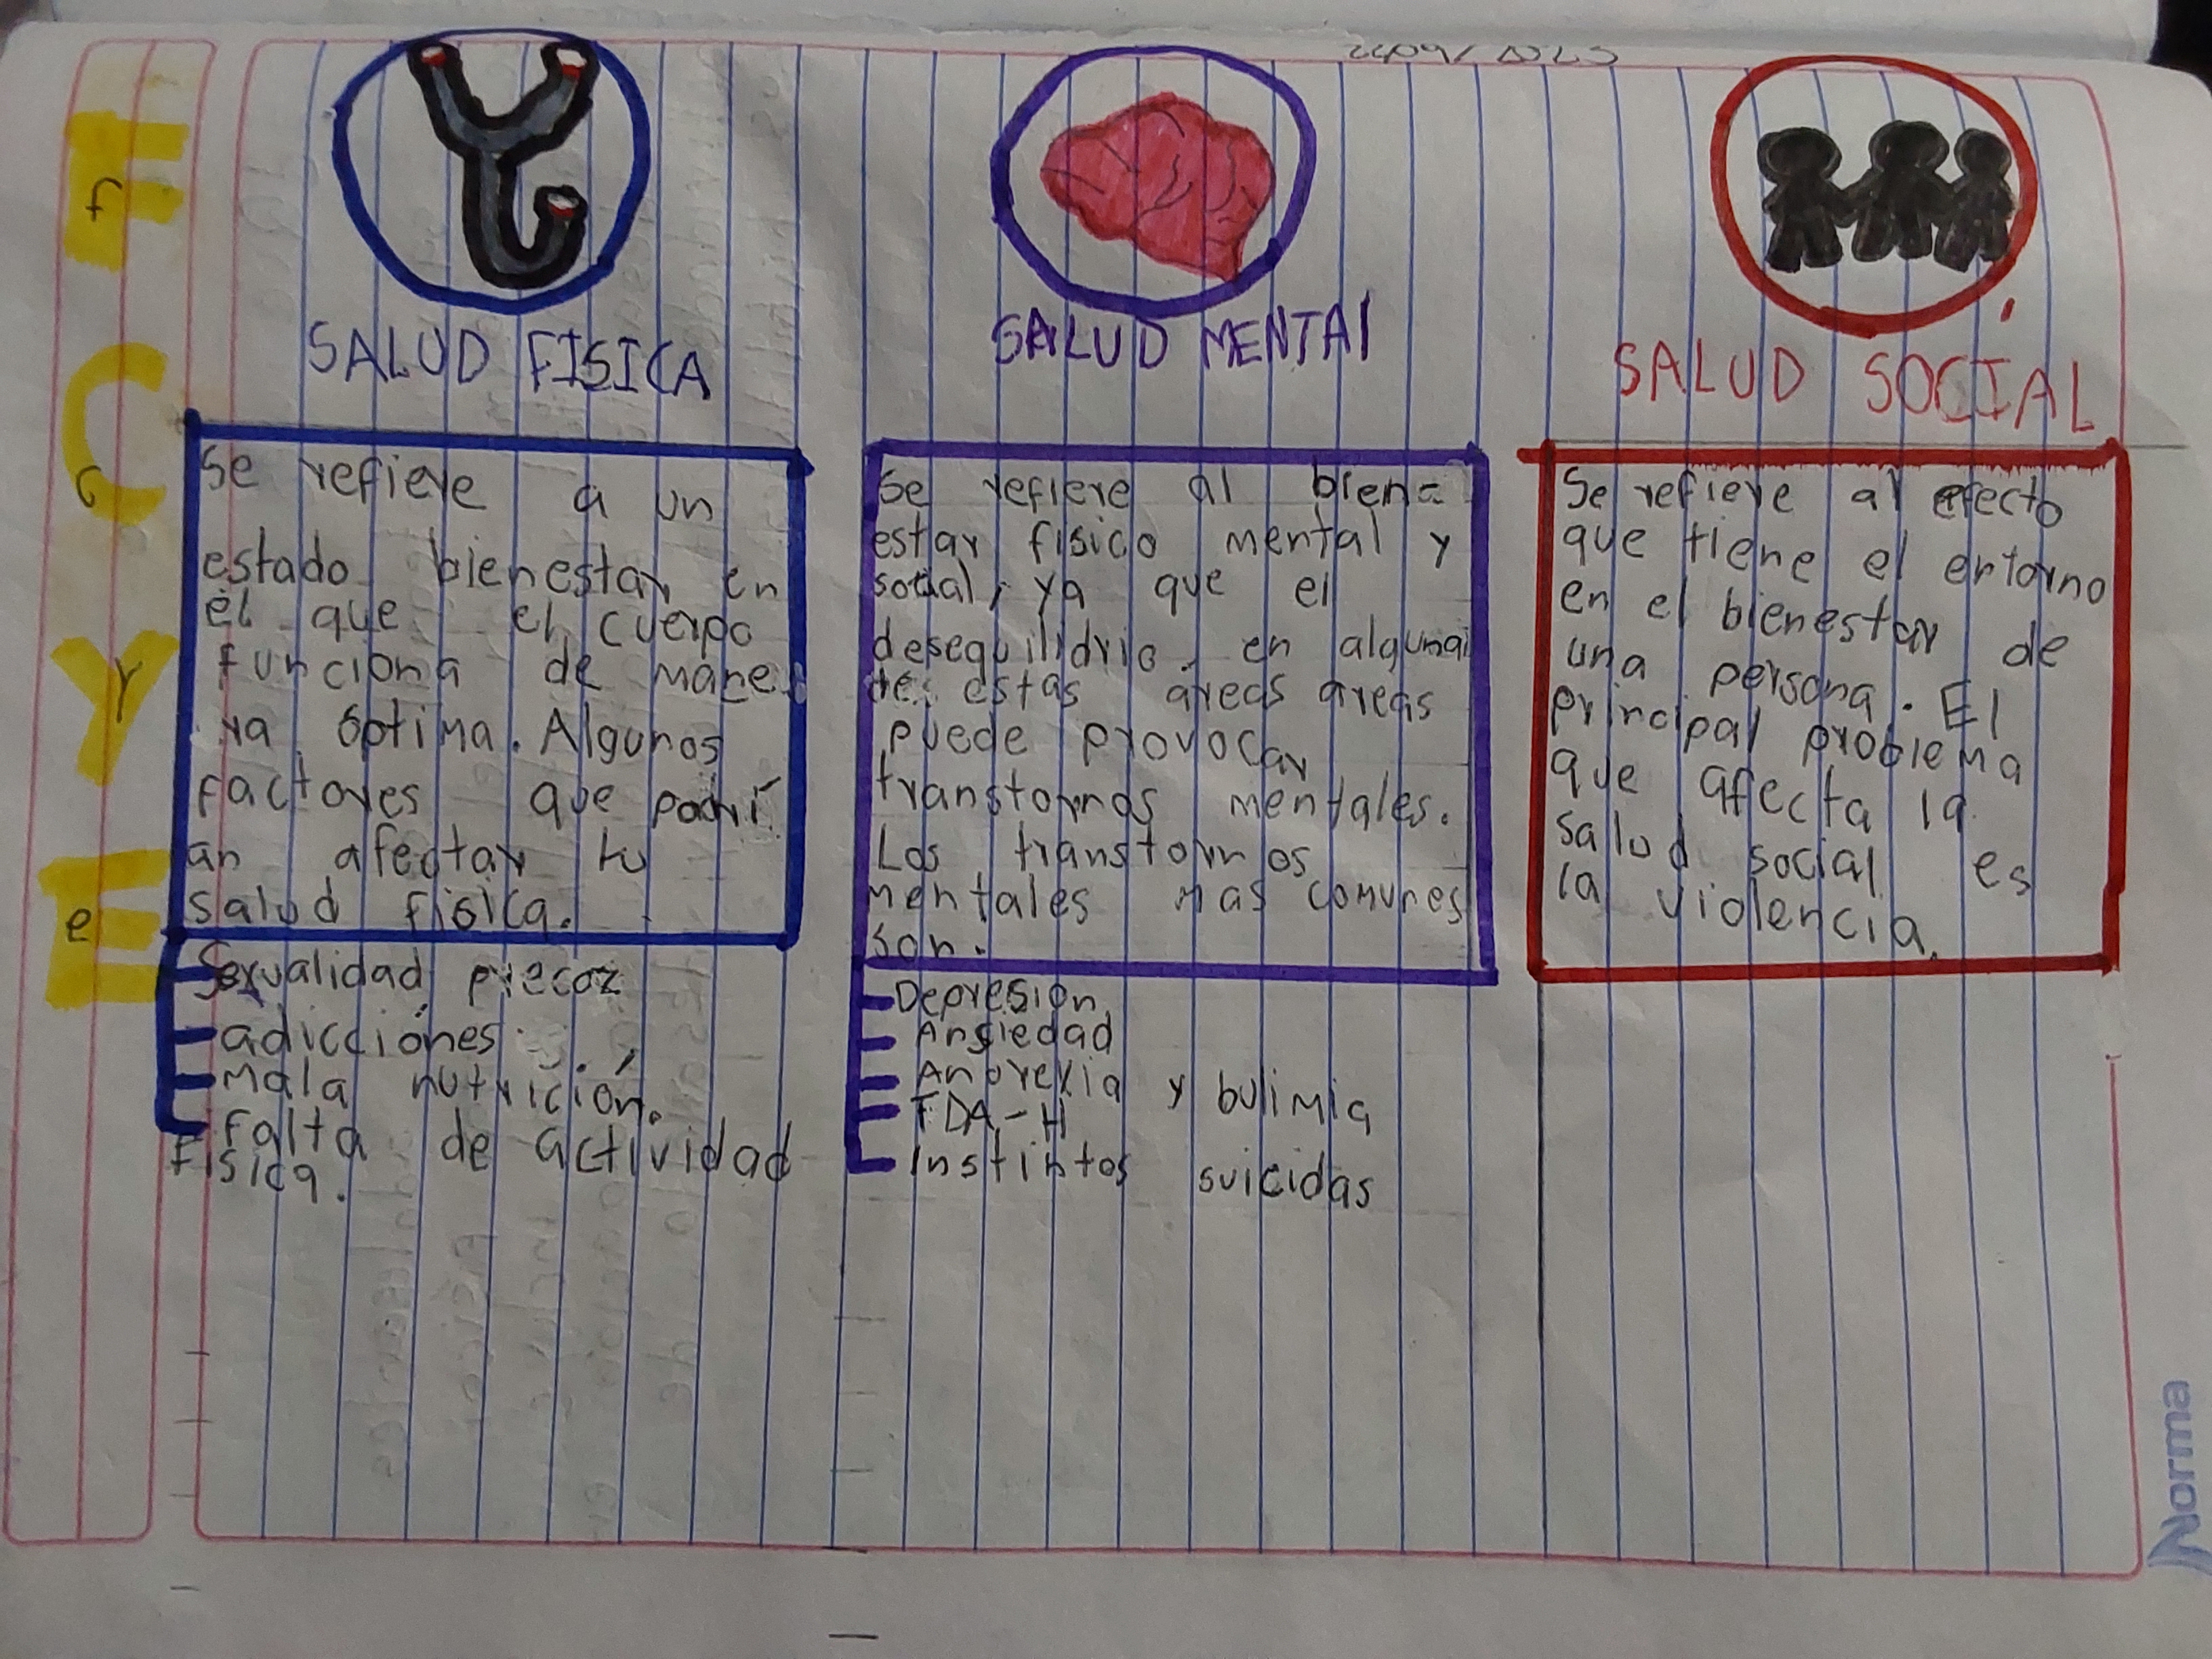 F
C
Y
E
f
c
y
e
SALUD FISICA
Se refiere a un
estado bienestar en
el que el cuerpo
funciona de mane
ra óptima. Algunos
factores que podrí
an afectar tu
salud fisica.
Sexualidad precoz
adicciónes
Mala nutrición.
Falta de actividad
Fisica.
SALUD MENTAl
Se refiere al bien=
estar fisico mental y
social, ya que el
desequilidrio en alguna
de estas áreas areas
puede provocar
transtornos mentales.
Los transtornos
mentales mas comunes
son.
Depresión
Ansiedad
Anorexia y bulimia
TDA-H
Instintos suicidas
SALUD SOCIAL
Se refiere al efecto
que tiene el entorno
en el bienestar de
una persona. El
principal problema
que afecta la
salud social es
la violencia.
Norma